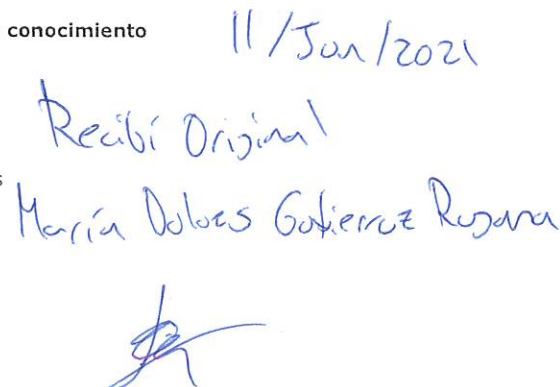 conocimiento
11/Jun/2021
Recibí Original
s
María Dolores Gutierrez